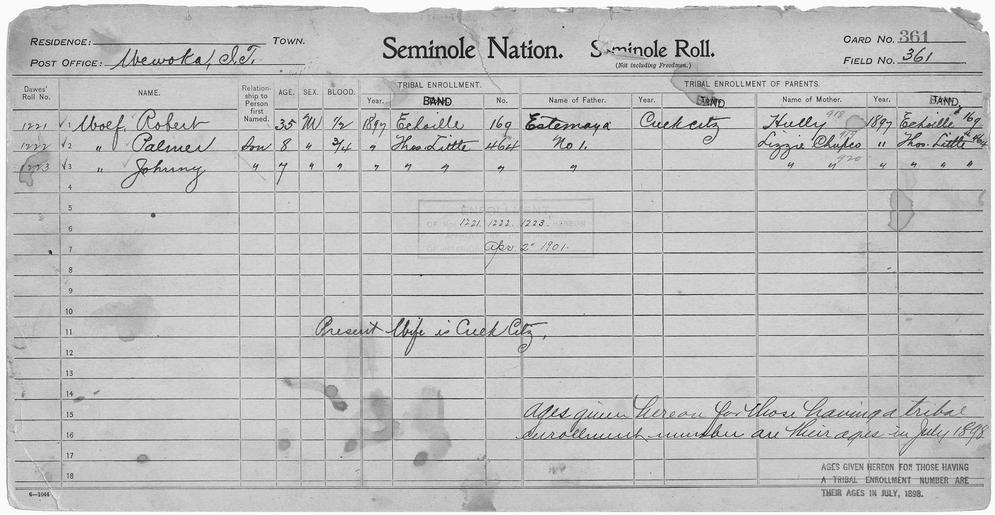 RESIDENCE: TOWN.
POST OFFICE: Wewoka, I.T.
Seminole Nation. Seminole Roll.
(Not including Freedmen.)
CARD NO. 361
FIELD NO. 361
Dawes' Roll No. NAME. Relationship to Person first Named. AGE. SEX. BLOOD. TRIBAL ENROLLMENT. TRIBAL ENROLLMENT OF PARENTS.
Year. BAND No. Name of Father. Year. BAND Name of Mother. Year. BAND
1221 1 Wolf, Robert 35 M 1/2 1897 Echoille 169 Estemaya Creek citz Hully 918 1897 Echoille #169
1222 2 " Palmer Son 8 " 3/4 " Thos. Little 464 No 1. Lizzie Chupco 919 " Thos. Little #464
1223 3 " Johnny " 7 " " " " " " " " " 920 " " " "
4
5
ENROLLMENT
6 1221 1222 1223 HEREON
7 Apr. 2" 1901.
8
9
10
11 Present Wife is Creek Citz.
12
13
14
15 Ages given hereon for those having a tribal
16 enrollment number are their ages in July 1898
17
18
AGES GIVEN HEREON FOR THOSE HAVING
A TRIBAL ENROLLMENT NUMBER ARE
THEIR AGES IN JULY, 1898.
6—1044